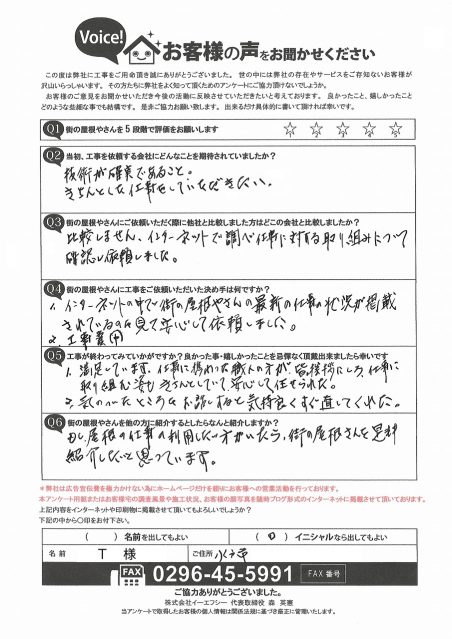 Voice!
お客様の声をお聞かせください
この度は弊社に工事をご用命頂き誠にありがとうございました。 世の中には弊社の存在やサービスをご存知ないお客様が
沢山いらっしゃいます。 その方たちに弊社をよく知って頂くためのアンケートにご協力頂けないでしょうか。
お客様のご意見をお聞かせいただき今後の活動に反映させていただきたいと考えております。 良かったこと、嬉しかったこと
どのような些細な事でも結構です。 是非ご協力お願い致します。 出来るだけ具体的に書いて頂ければ幸いです。
Q1 街の屋根やさんを5段階で評価をお願いします ☆ ☆ ☆ ☆ ☆
Q2 当初、工事を依頼する会社にどんなことを期待されていましたか?
技術が確実であること。
きちんとした仕事をしていただきたい。
Q3 街の屋根やさんにご依頼いただく際に他社と比較しました方はどこの会社と比較しましたか?
比較しません、インターネットで調べ仕事に対する取り組みについて
確認し依頼しました。
Q4 街の屋根やさんに工事をご依頼いただいた決め手は何ですか?
1. インターネットの中で街の屋根やさんの最新の仕事の状況が掲載
されているのを見て安心して依頼しました。
2. 工事費(円)
Q5 工事が終わってみていかがですか?良かった事・嬉しかったことを忌憚なく頂戴出来ましたら幸いです
1. 満足しています。仕事に携わった職人の方が、皆挨拶にしろ、仕事に
取り組む姿もきちんとしていて安心して任せられた。
2. 気のついたところをお話しすると気持良くすぐ直してくれた。
Q6 街の屋根やさんを他の方に紹介するとしたらなんと紹介しますか?
もし、屋根の仕事の利用したい方がいたら、街の屋根さんを是非
紹介したいと思っています。
※弊社は広告宣伝費を極力かけない為にホームページだけを頼りにお客様への営業活動を行っております。
本アンケート用紙またはお客様宅の調査風景や施工状況、お客様の顔写真を随時ブログ形式のインターネットに掲載させて頂いております。
上記内容をインターネットや印刷物に掲載させて頂いてもよろしいでしょうか?
下記の中から〇印をお付下さい。
( ) 名前を出してもよい ( 〇 ) イニシャルなら出してもよい
名前 T 様 ご住所
FAX 0296-45-5991 FAX 番号
ご協力ありがとうございました。
株式会社イーエフシー 代表取締役 森 英憲
当アンケートで取得したお客様の個人情報は関係法規に基づき厳正に管理いたします。